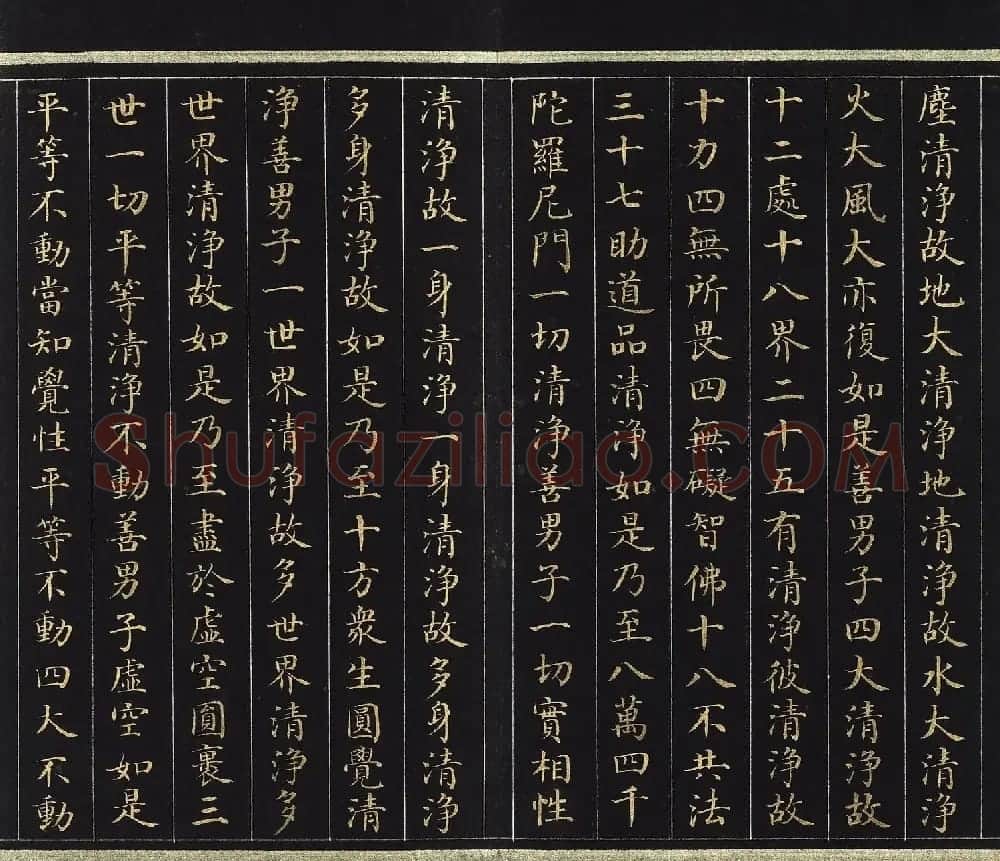 塵清淨故地大清淨地清淨故水大清淨
火大風大亦復如是善男子四大清淨故
十二處十八界二十五有清淨彼清淨故
十力四無所畏四無礙智佛十八不共法
三十七助道品清淨如是乃至八萬四千
陀羅尼門一切清淨善男子一切實相性
清淨故一身清淨一身清淨故多身清淨
多身清淨故如是乃至十方衆生圓覺清
淨善男子一世界清淨故多世界清淨多
世界清淨故如是乃至盡於虛空圓裹三
世一切平等清淨不動善男子虛空如是
平等不動當知覺性平等不動四大不動
Shufaziliao.COM